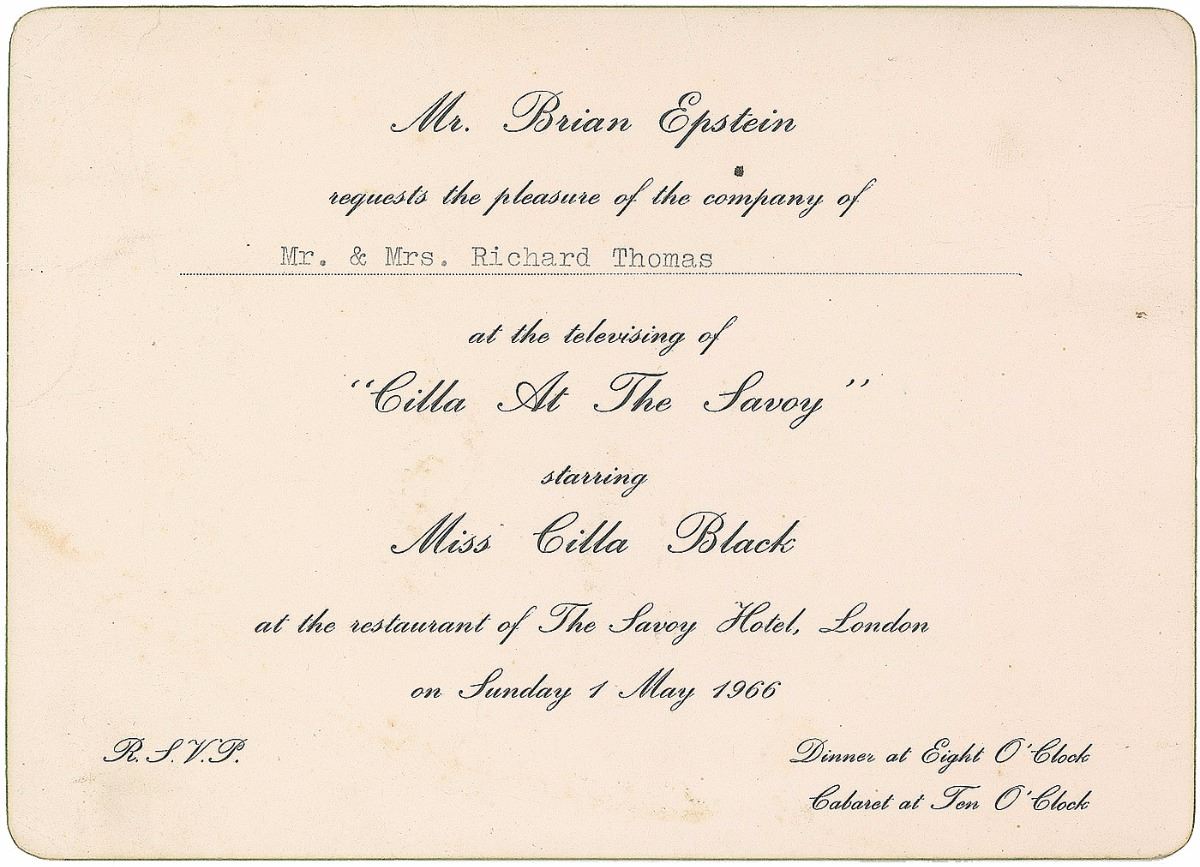 Mr. Brian Epstein
requests the pleasure of the company of
Mr. & Mrs. Richard Thomas
at the televising of
“Cilla At The Savoy”
starring
Miss Cilla Black
at the restaurant of The Savoy Hotel, London
on Sunday 1 May 1966
R.S.V.P.
Dinner at Eight O'Clock
Cabaret at Ten O'Clock